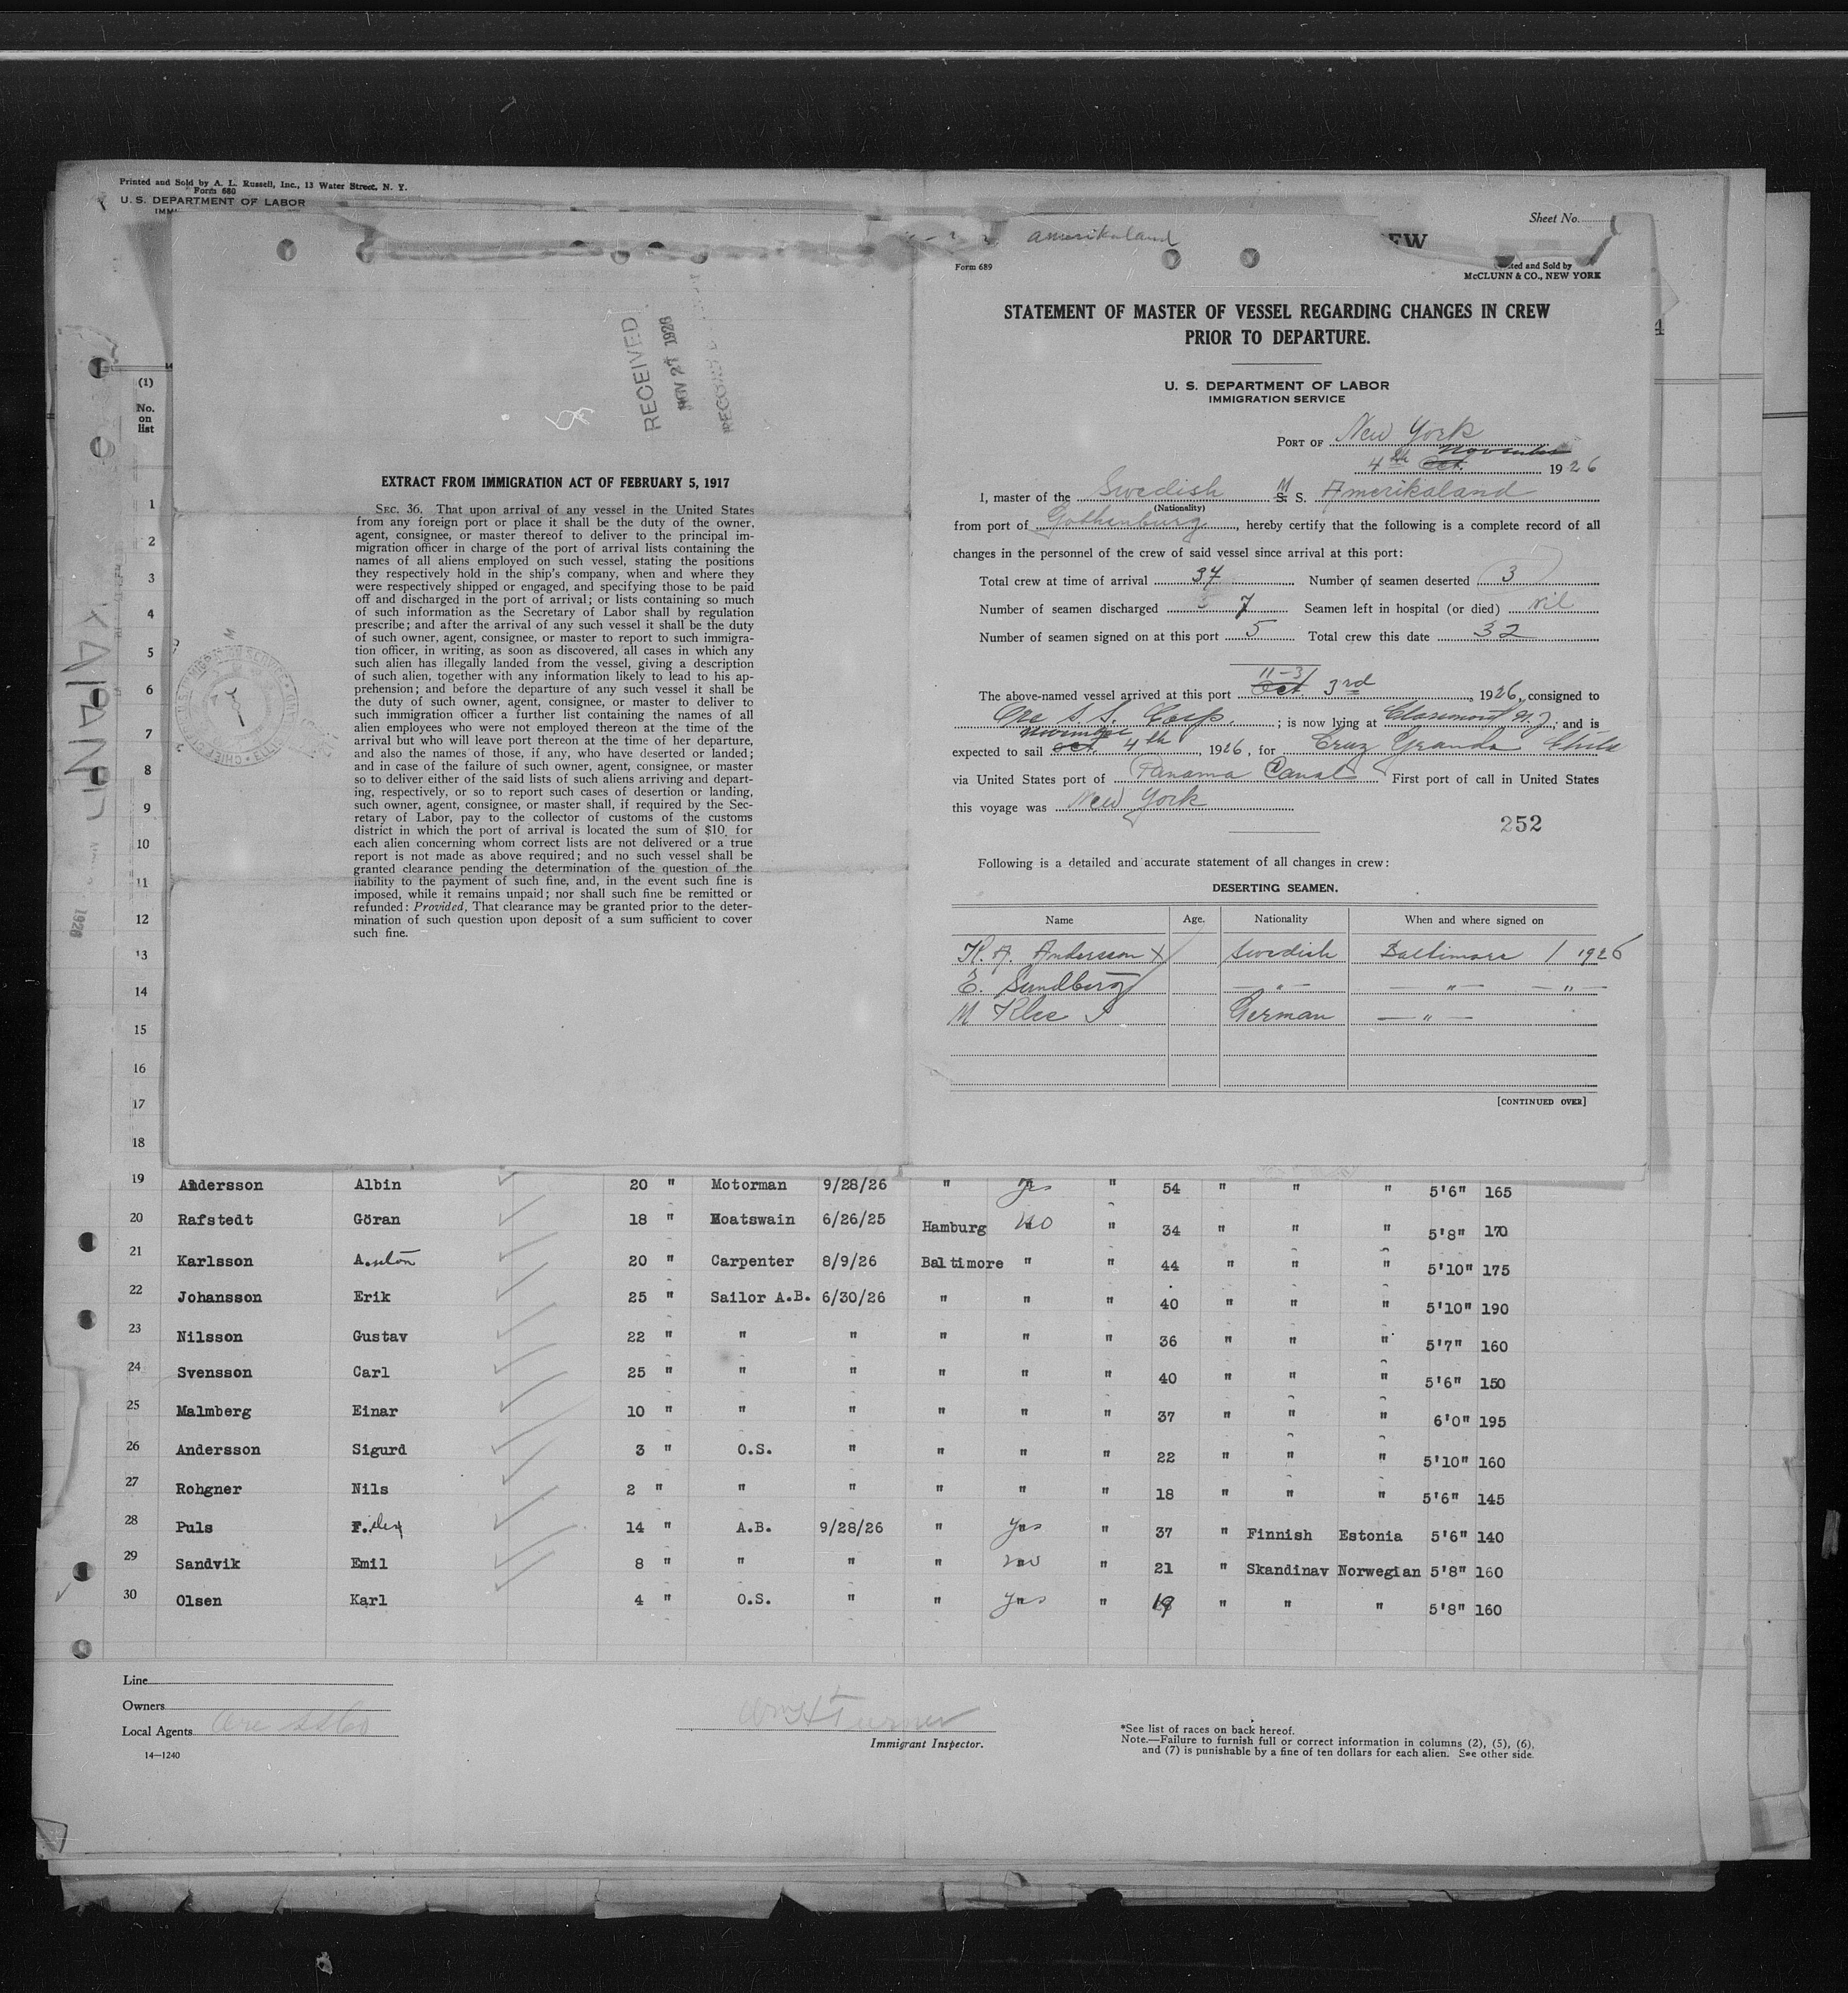 Printed and Sold by A. L. Russell, Inc., 13 Water Street, N. Y.
Form 680
U. S. DEPARTMENT OF LABOR
Sheet No.
(1)
No.
on
list
1
2
3
4
5
6
7
8
9
10
11
12
13
14
15
16
17
18
RECEIVED
NOV 27 1926
EXTRACT FROM IMMIGRATION ACT OF FEBRUARY 5, 1917
SEC. 36. That upon arrival of any vessel in the United States
from any foreign port or place it shall be the duty of the owner,
agent, consignee, or master thereof to deliver to the principal im-
migration officer in charge of the port of arrival lists containing the
names of all aliens employed on such vessel, stating the positions
they respectively hold in the ship's company, when and where they
were respectively shipped or engaged, and specifying those to be paid
off and discharged in the port of arrival; or lists containing so much
of such information as the Secretary of Labor shall by regulation
prescribe; and after the arrival of any such vessel it shall be the duty
of such owner, agent, consignee, or master to report to such immigra-
tion officer, in writing, as soon as discovered, all cases in which any
such alien has illegally landed from the vessel, giving a description
of such alien, together with any information likely to lead to his ap-
prehension; and before the departure of any such vessel it shall be
the duty of such owner, agent, consignee, or master to deliver to
such immigration officer a further list containing the names of all
alien employees who were not employed thereon at the time of the
arrival but who will leave port thereon at the time of her departure,
and also the names of those, if any, who have deserted or landed;
and in case of the failure of such owner, agent, consignee, or master
so to deliver either of the said lists of such aliens arriving and depart-
ing, respectively, or so to report such cases of desertion or landing,
such owner, agent, consignee, or master shall, if required by the Sec-
retary of Labor, pay to the collector of customs of the customs
district in which the port of arrival is located the sum of $10 for
each alien concerning whom correct lists are not delivered or a true
report is not made as above required; and no such vessel shall be
granted clearance pending the determination of the question of the
liability to the payment of such fine, and, in the event such fine is
imposed, while it remains unpaid; nor shall such fine be remitted or
refunded: Provided, That clearance may be granted prior to the deter-
mination of such question upon deposit of a sum sufficient to cover
such fine.
amerikaland
EW
Form 689
Printed and Sold by
McCLUNN & CO., NEW YORK
STATEMENT OF MASTER OF VESSEL REGARDING CHANGES IN CREW
PRIOR TO DEPARTURE.
U. S. DEPARTMENT OF LABOR
IMMIGRATION SERVICE
PORT OF New York
November
4th Oct. 1926
I, master of the Swedish M S. S. Amerikaland
(Nationality)
from port of Gothenburg, hereby certify that the following is a complete record of all
changes in the personnel of the crew of said vessel since arrival at this port:
Total crew at time of arrival 37 Number of seamen deserted 3
Number of seamen discharged 7 Seamen left in hospital (or died) Nil
Number of seamen signed on at this port 5 Total crew this date 32
11-3
The above-named vessel arrived at this port Oct. 3rd, 1926, consigned to
Ore S. S. Corp.; is now lying at Claremont N.J. and is
November
expected to sail Oct. 4th, 1926, for Cruz Grande Chile
via United States port of Panama Canal First port of call in United States
this voyage was New York
252
Following is a detailed and accurate statement of all changes in crew:
DESERTING SEAMEN.
Name Age. Nationality When and where signed on
K. A. Andersson X Swedish Baltimore / 1926
E. Sundberg — " — — " — — " —
M Klee German — " —
[CONTINUED OVER]
19 Andersson Albin 20 " Motorman 9/28/26 " yes " 54 " " " 5'6" 165
20 Rafstedt Göran 18 " Boatswain 6/26/25 Hamburg no " 34 " " " 5'8" 170
21 Karlsson Anton 20 " Carpenter 8/9/26 Baltimore " " 44 " " " 5'10" 175
22 Johansson Erik 25 " Sailor A.B. 6/30/26 " " " 40 " " " 5'10" 190
23 Nilsson Gustav 22 " " " " " " 36 " " " 5'7" 160
24 Svensson Carl 25 " " " " " " 40 " " " 5'6" 150
25 Malmberg Einar 10 " " " " " " 37 " " " 6'0" 195
26 Andersson Sigurd 3 " O.S. " " " " 22 " " " 5'10" 160
27 Rohgner Nils 2 " " " " " " 18 " " " 5'6" 145
28 Puls 14 " A.B. 9/28/26 " yes " 37 " Finnish Estonia 5'6" 140
29 Sandvik Emil 8 " " " " no " 21 " Skandinav Norwegian 5'8" 160
30 Olsen Karl 4 " O.S. " " yes " 19 " " " 5'8" 160
Line
Owners
Local Agents Ore SS Co
14—1240
Wm H Turner
Immigrant Inspector.
*See list of races on back hereof.
Note.—Failure to furnish full or correct information in columns (2), (5), (6),
and (7) is punishable by a fine of ten dollars for each alien. See other side.